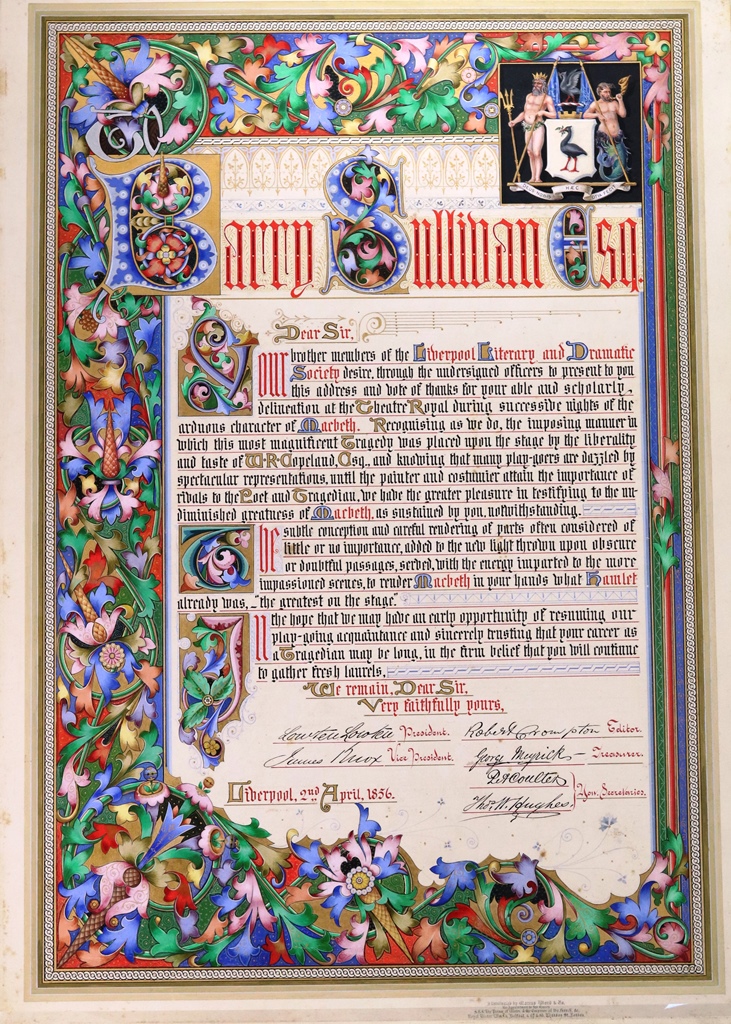 To
Barry Sullivan Esq.
Dear Sir,
Our brother members of the Liverpool Literary and Dramatic
Society desire, through the undersigned officers to present to you
this address and vote of thanks for your able and scholarly
delineation at the Theatre Royal during successive nights of the
arduous character of Macbeth. Recognising as we do, the imposing manner in
which this most magnificent Tragedy was placed upon the stage by the liberality
and taste of W.R. Copeland, Esq., and knowing that many play-goers are dazzled by
spectacular representations, until the painter and costumier attain the importance of
rivals to the Poet and Tragedian, we have the greater pleasure in testifying to the un-
diminished greatness of Macbeth, as sustained by you, notwithstanding.
The subtle conception and careful rendering of parts often considered of
little or no importance, added to the new light thrown upon obscure
or doubtful passages, served, with the energy imparted to the more
impassioned scenes, to render Macbeth in your hands what Hamlet
already was, "the greatest on the stage."
In the hope that we may have an early opportunity of resuming our
play-going acquaintance and sincerely trusting that your career as
a Tragedian may be long, in the firm belief that you will continue
to gather fresh laurels,
We remain, Dear Sir,
Very faithfully yours,
President. Robert Crompton Editor.
James Knox Vice President. George Meyrick Treasurer.
P. A. Coulter
Thos. W. Hughes Hon. Secretaries.
Liverpool, 2nd April, 1856.